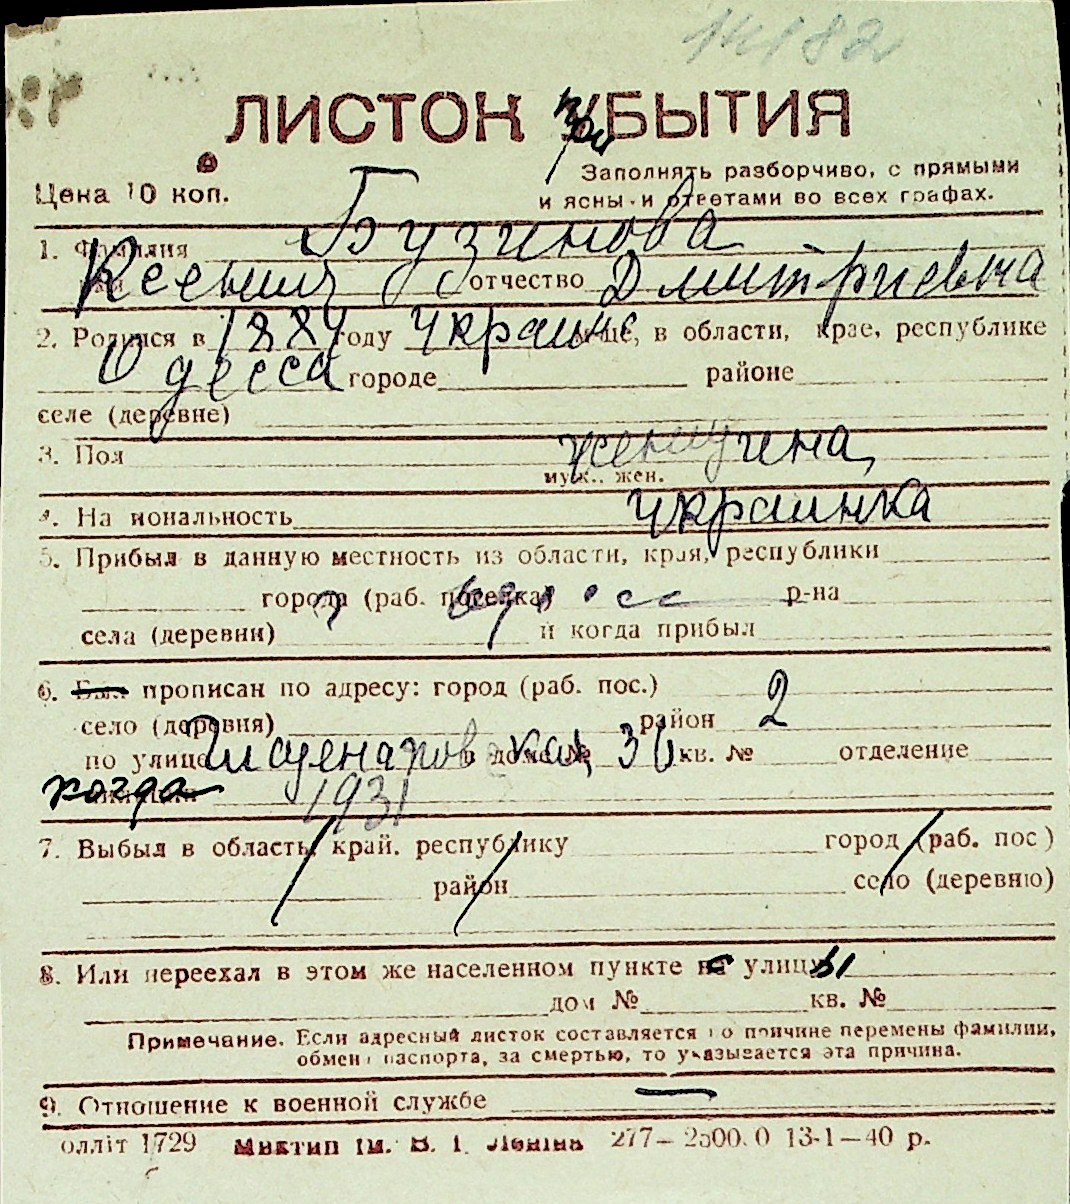 14182
ЛИСТОК при УБЫТИЯ
Заполнять разборчиво, с прямыми
Цена 10 коп. и ясны и ответами во всех графах.
1. Фамилия Бузинова
Ксения отчество Дмитриевна
2. Родился в 1884 году Украине, в области, крае, республике
Одесса городе районе
селе (деревне)
3. Пол женщина
муж., жен.
4. На иональность украинка
5. Прибыл в данную местность из области, края, республики
города (раб. поселка) р-на
села (деревни) и когда прибыл
6. Был прописан по адресу: город (раб. пос.)
село (деревня) район 2
по улице дома № 36 кв. № отделение
когда 1931
7. Выбыл в область, край, республику город (раб. пос)
район село (деревню)
8. Или переехал в этом же населенном пункте с улицы
дом № кв. №
Примечание. Если адресный листок составляется по причине перемены фамилии,
обмен паспорта, за смертью, то указывается эта причина.
9. Отношение к военной службе —
олліт 1729 Миктип ім. В. І. Леніна 277—2500.0 13-1—40 р.